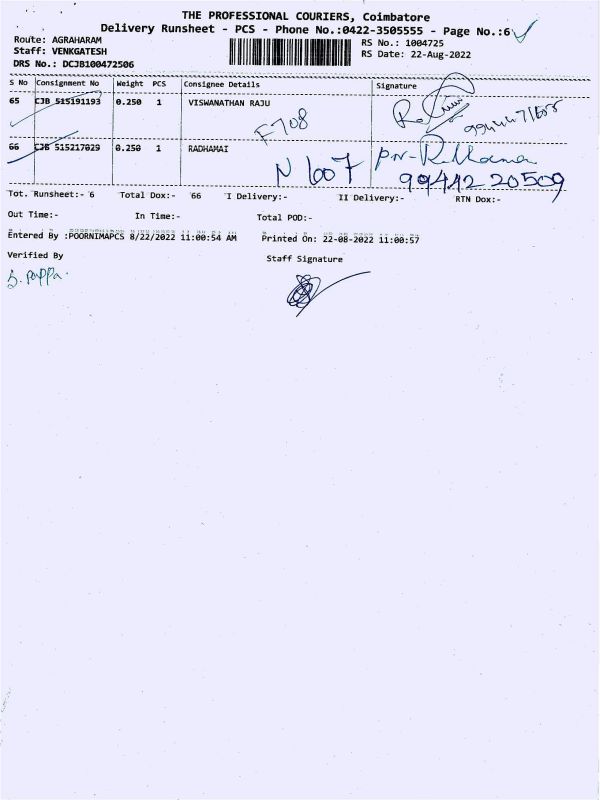 THE PROFESSIONAL COURIERS, Coimbatore
Delivery Runsheet - PCS - Phone No.:0422-3505555 - Page No.:6
Route: AGRAHARAM
Staff: VENKGATESH
DRS No.: DCJB100472506
RS No.: 1004725
RS Date: 22-Aug-2022
S No Consignment No Weight PCS Consignee Details Signature
65 CJB 515191193 0.250 1 VISWANATHAN RAJU
F708
66 CJB 515217029 0.250 1 RADHAMAI
N 607
99442 20509
Tot. Runsheet:- 6 Total Dox:- 66 I Delivery:- II Delivery:- RTN Dox:-
Out Time:- In Time:- Total POD:-
Entered By :POORNIMAPCS 8/22/2022 11:00:54 AM Printed On: 22-08-2022 11:00:57
Verified By Staff Signature
S. pappa.